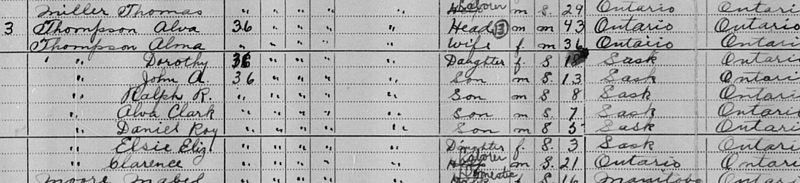 Miller Thomas " " " " " Laborer m S. 29 Ontario Ontario
3 Thompson Alva 36 " " " " Head 3 m m 43 Ontario Ontario
Thompson Alma " " " " " Wife f. m 36 Ontario Ontario
" Dorothy 36 " " " " Daughter f. S. Sask Ontario
" John A 36 " " " " Son m S. 13 Sask Ontario
" Ralph R. " " " " " Son m S. 8 Sask Ontario
" Alva Clark " " " " " Son m S. 7 Sask Ontario
" Daniel Roy " " " " " Son m S. 5 Sask Ontario
" Elsie Eliz " " " " " Daughter f. S. 3 Sask Ontario
" Clarence " " " " " Laborer m S. 21 Ontario Ontario
Moore Mabel " " " " " Domestic f S. 16 Manitoba Ontario